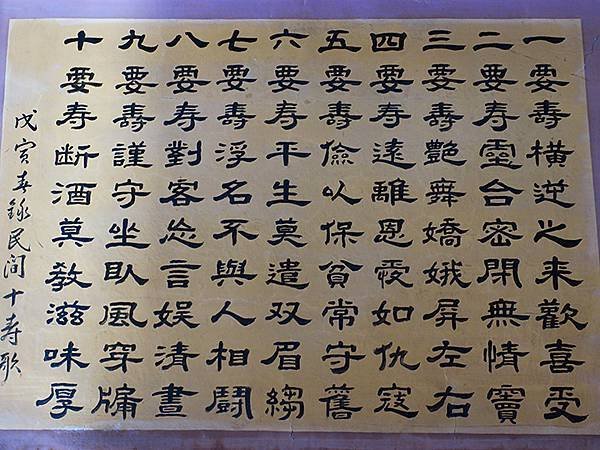 一要壽橫逆之来歡喜受
二要寿靈台密閉無情竇
三要壽艷舞嬌娥屏左右
四要寿遠離恩愛如仇寇
五要壽儉以保貧常守舊
六要寿平生莫遣双眉縐
七要壽浮名不與人相鬪
八要寿對客忘言娱清晝
九要壽謹守坐臥風穿牖
十要寿断酒莫教滋味厚
戊寅春錄民间十寿歌